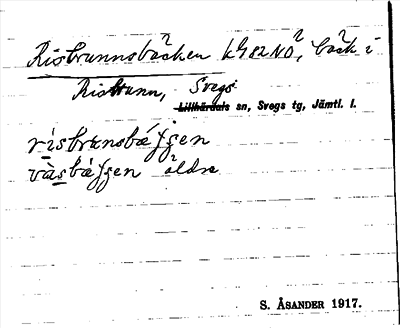 Risbrunnsbäcken k482NO², bäck i
Risbrunn, Svegs
Lillhärdals sn, Svegs tg, Jämtl. l.
rìsbrunsbäʃʃen
vàsbäʃʃen äldre
S. ÅSANDER 1917.